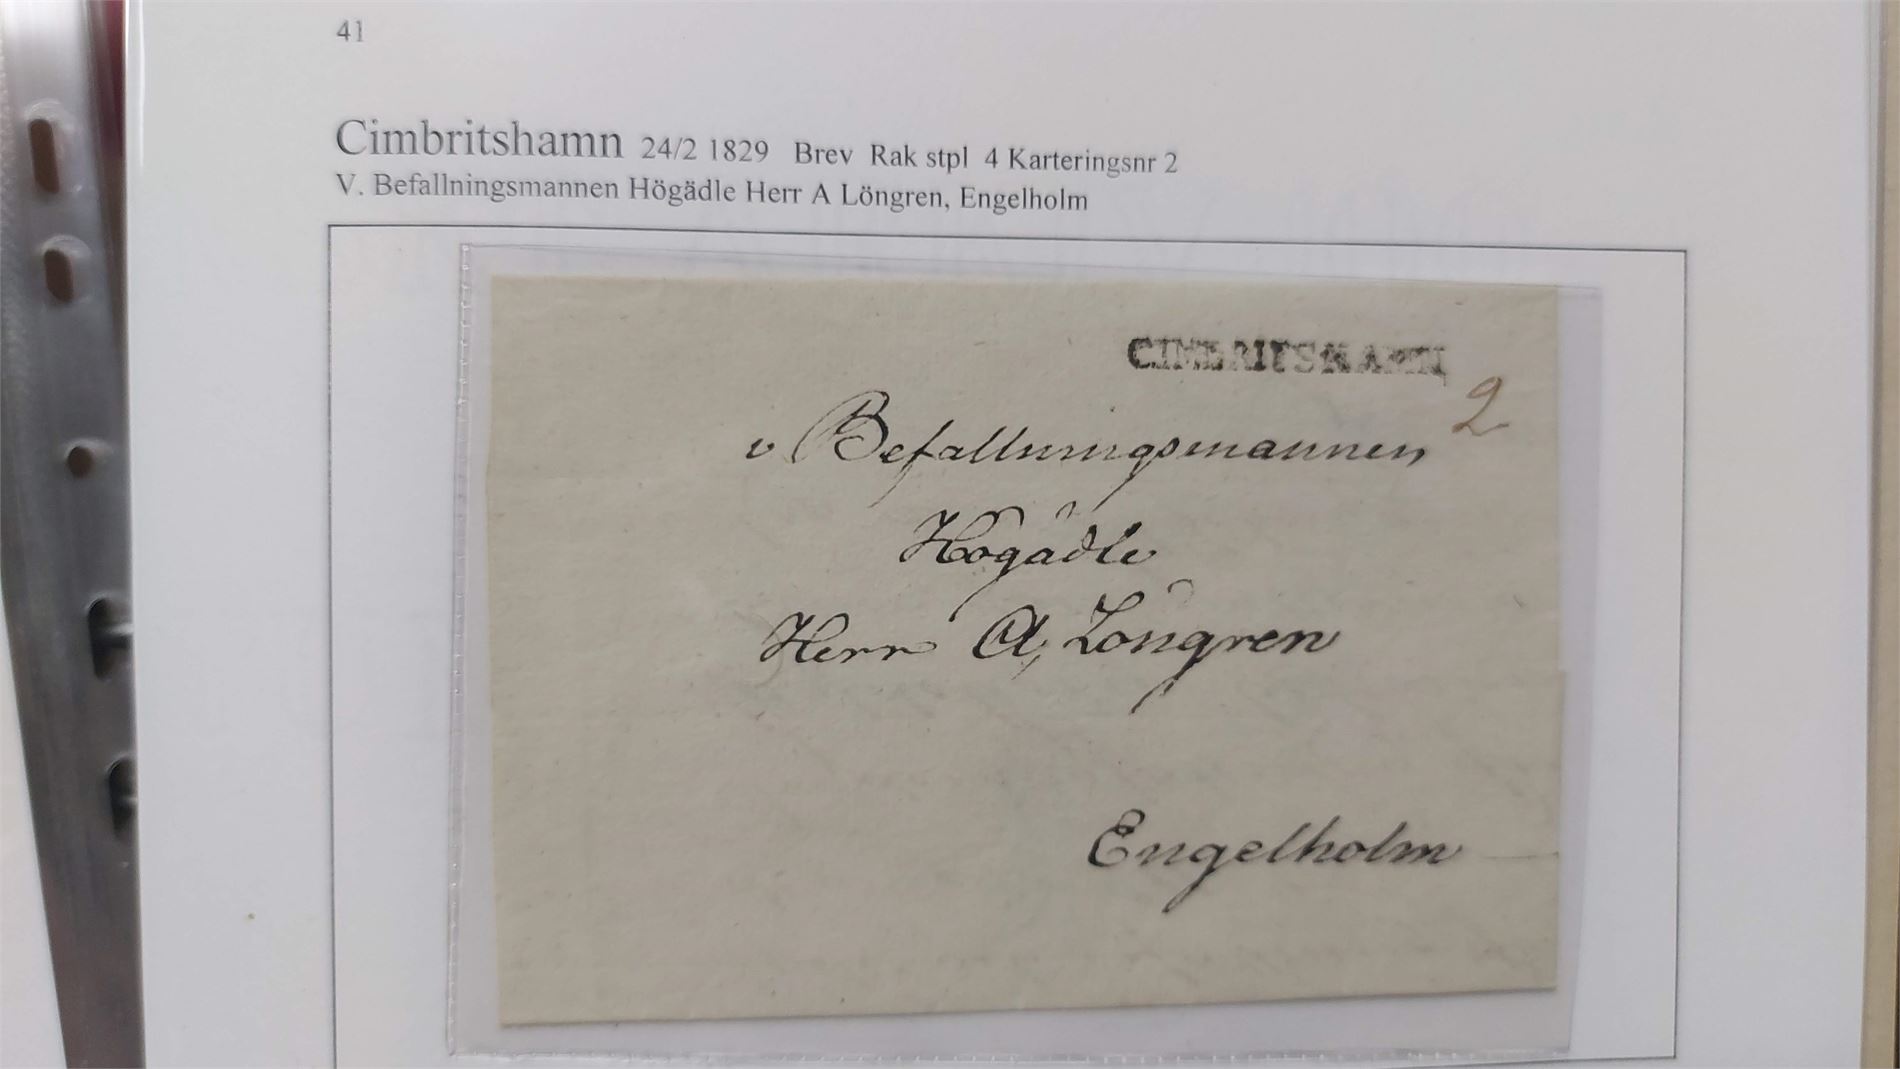 41
Cimbritshamn 24/2 1829 Brev Rak stpl 4 Karteringsnr 2
V. Befallningsmannen Högädle Herr A Löngren, Engelholm
CIMBRITSHAMN
2
v Befallningsmannen
Högädle
Herr A, Löngren
Engelholm